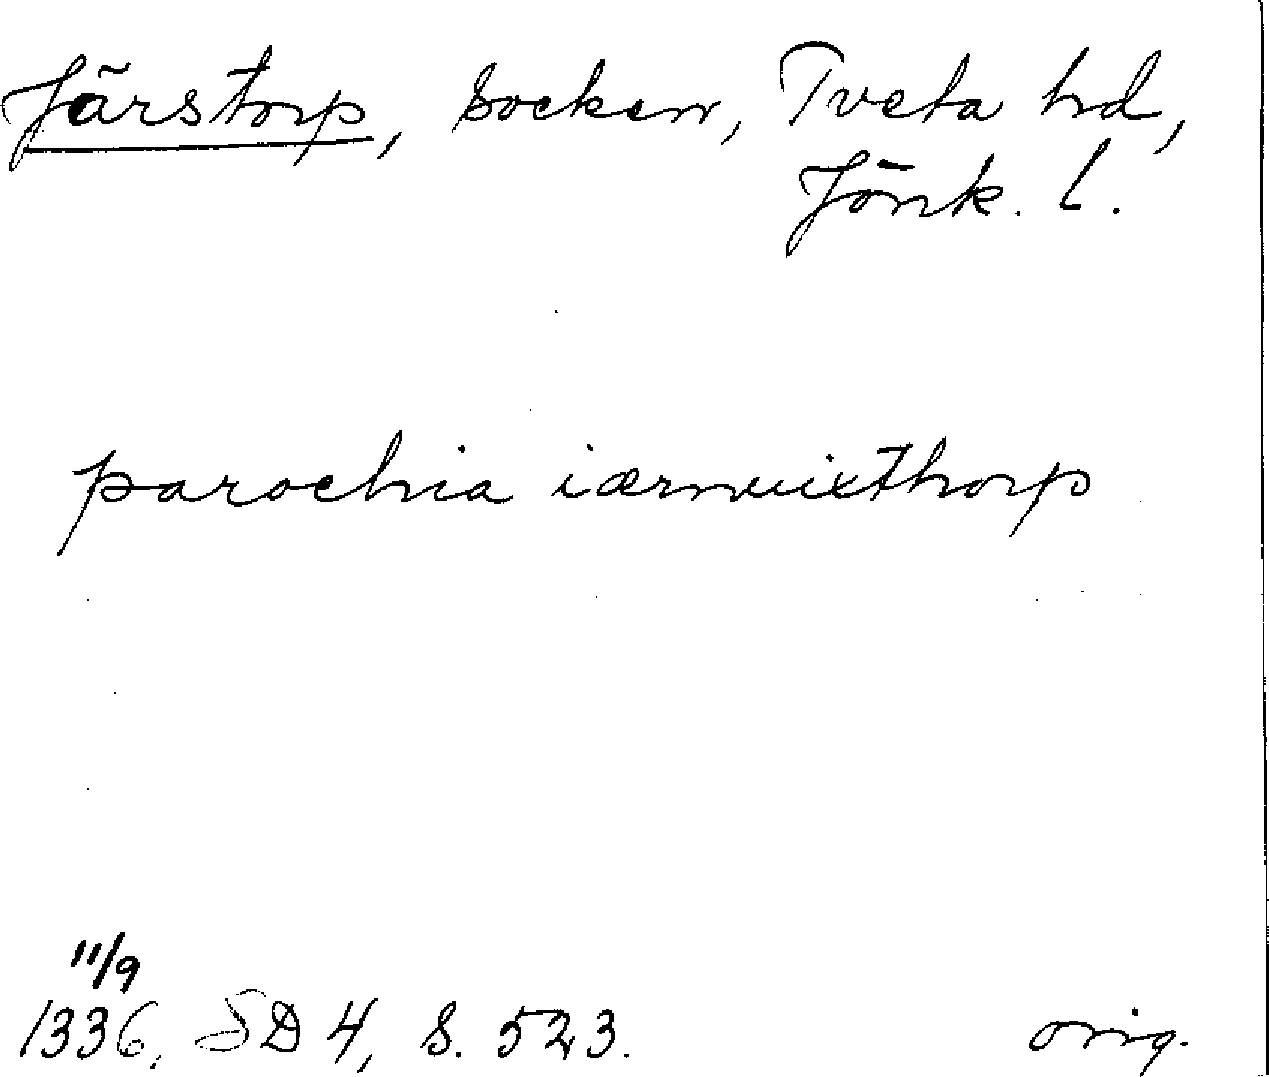 Järstorp, socken, Tveta hd,
Jönk. l.
parochia iærnuixthorp
11/9
1336, SD 4, s. 523.
orig.